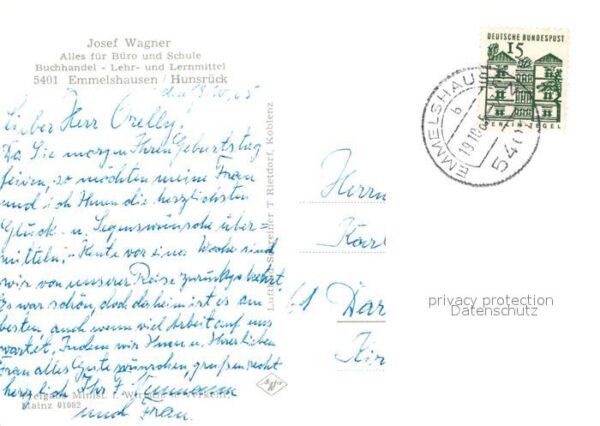 Josef Wagner
Alles für Büro und Schule
Buchhandel - Lehr- und Lernmittel
5401 Emmelshausen / Hunsrück
d. 19.10.65
Lieber Herr Orelly!
Da Sie morgen Ihren Geburtstag
feiern, so möchten meine Frau
und ich Ihnen die herzlichsten
Glück- u. Segenswünsche über-
mitteln. - Heute vor einer Woche sind
wir von unserer Reise zurückgekehrt.
Es war schön, doch daheim ist es am
besten, auch wenn viel Arbeit auf uns
wartet. Indem wir Ihnen u. Ihrer lieben
Frau alles Gute wünschen grüßen recht
herzlich Ihr
und Frau.
Freigabe Minist. f. Wirtsch. u. Verkehr,
Mainz 01082
Luftbild Schreiner T Rietdorf, Koblenz
DEUTSCHE BUNDESPOST
15
BERLIN-TEGEL
EMMELSHAUSEN
b
19.10.65
5401
Herrn
Karl
61 Dar
Kir
privacy protection
Datenschutz